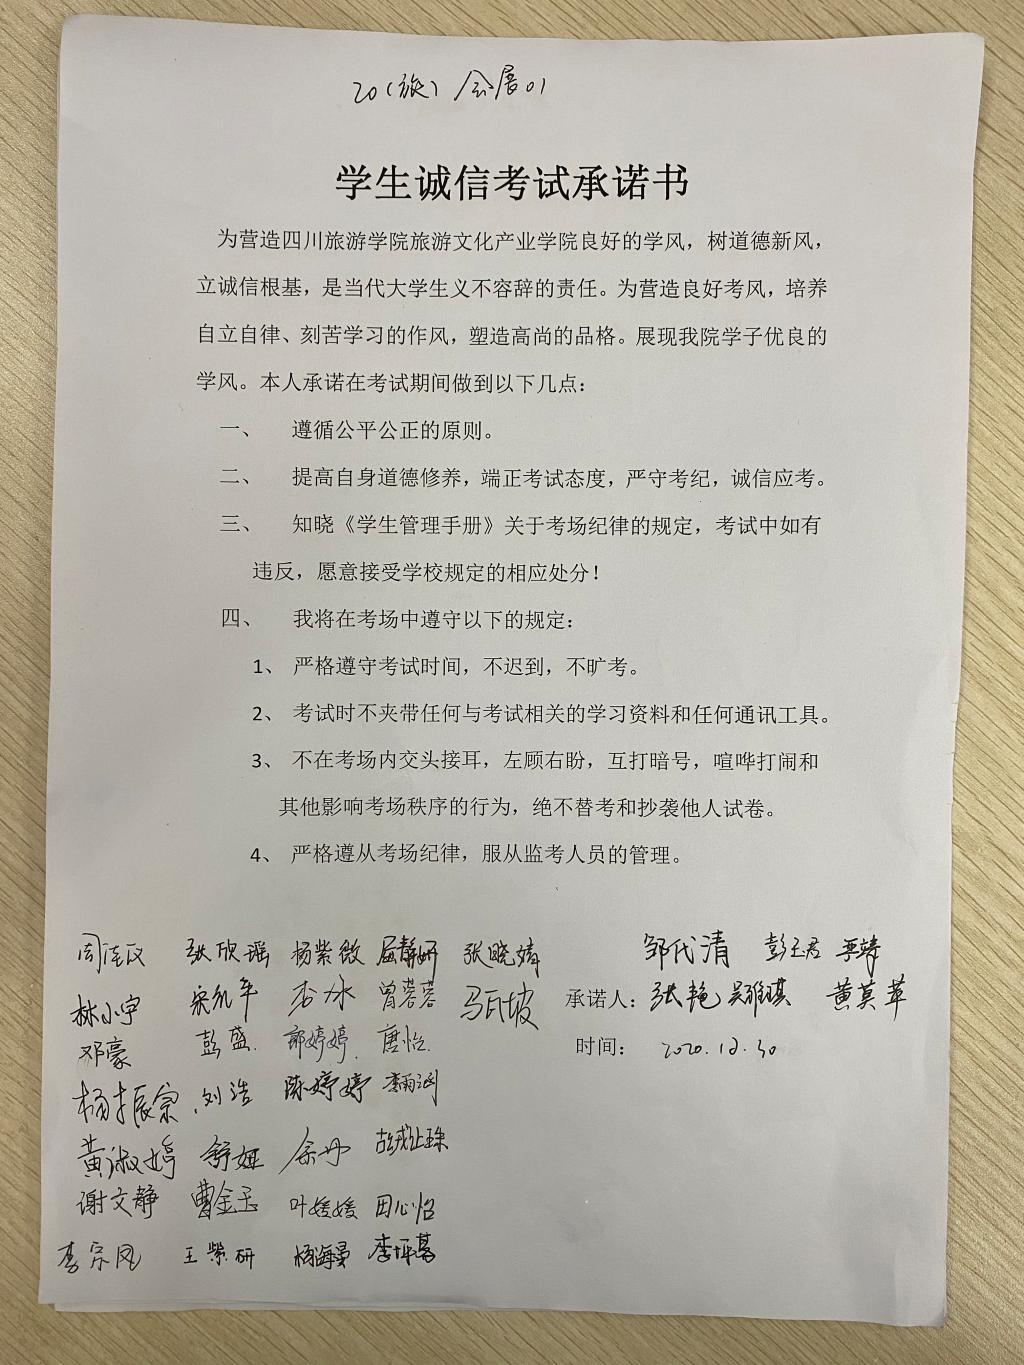 20(旅)会展01
学生诚信考试承诺书
为营造四川旅游学院旅游文化产业学院良好的学风，树道德新风，
立诚信根基，是当代大学生义不容辞的责任。为营造良好考风，培养
自立自律、刻苦学习的作风，塑造高尚的品格。展现我院学子优良的
学风。本人承诺在考试期间做到以下几点：
一、 遵循公平公正的原则。
二、 提高自身道德修养，端正考试态度，严守考纪，诚信应考。
三、 知晓《学生管理手册》关于考场纪律的规定，考试中如有
违反，愿意接受学校规定的相应处分！
四、 我将在考场中遵守以下的规定：
1、 严格遵守考试时间，不迟到，不旷考。
2、 考试时不夹带任何与考试相关的学习资料和任何通讯工具。
3、 不在考场内交头接耳，左顾右盼，互打暗号，喧哗打闹和
其他影响考场秩序的行为，绝不替考和抄袭他人试卷。
4、 严格遵从考场纪律，服从监考人员的管理。
张欣瑶 杨紫微 屈静妍 张晓婧 邹代清
林小宇 曾蓉蓉 承诺人：张艳 黄莫苹
邓豪 彭盛 郭婷婷 唐怡 时间： 2020.12.30
杨振宗 刘浩 陈婷婷
黄淑婷 舒娅 余丹
谢文静 曹金玉 叶媛媛 田心怡
李宗凤 王紫研 杨海曼